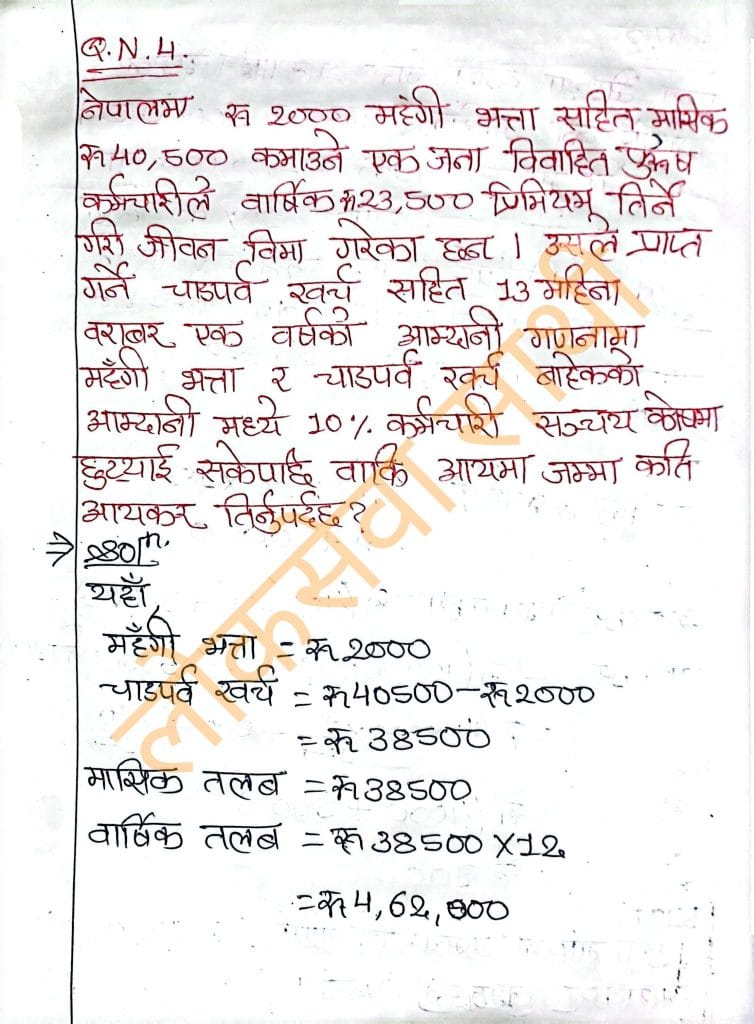 Q.N.4.
नेपालमा रू 2000 महंगी भत्ता सहित मासिक
रू 40,500 कमाउने एक जना विवाहित पुरूष
कर्मचारीले वार्षिक रू 23,500 प्रिमियम तिर्ने
गरी जीवन विमा गरेका छन् । उसले प्राप्त
गर्ने चाडपर्व खर्च सहित 13 महिना
बराबर एक वर्षको आम्दानी गणनामा
महँगी भत्ता र चाडपर्व खर्च बाहेकको
आम्दानी मध्ये 10% कर्मचारी सञ्चय कोषमा
छुट्याई सकेपछि बाकि आयमा जम्मा कति
आयकर तिर्नुपर्दछ ?
⇒ Solⁿ.
यहाँ,
महँगी भत्ता = रू 2000
चाडपर्व खर्च = रू 40500 – रू 2000
= रू 38500
मासिक तलब = रू 38500
वार्षिक तलब = रू 38500 X 12
= रू 4,62,000
लोकसेवा साथी